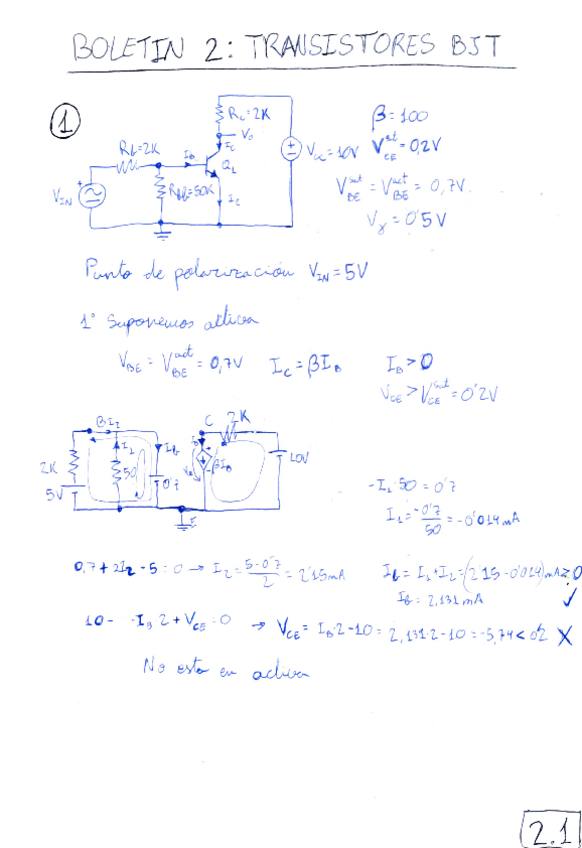 BOLETIN 2: TRANSISTORES BJT
1
Rc=2K
Vo
Ic
Rb=2K
IB
Q1
Vcc=10V
VIN
Rbb=50K
β=100
VCE^sat=0,2V
VBE^sat = VBE^act = 0,7V.
Vγ=0'5V
Punto de polarización VIN=5V
1° Suponemos activa
VBE = VBE^act = 0,7V IC=βIB IB>0
VCE>VCE^sat=0'2V
B I2
C 2K
2K
I1
Ib
50
0'7
5V
βIB
10V
E
-I1·50=0'7
I1=-0'7/50=-0'014mA
0,7+2I2-5=0 → I2=5-0'7/2=2'15mA Ib=I1+I2=(2'15-0'014)mA≥0
Ib=2,131mA ✓
10- -IB 2+VCE=0 → VCE=IB·2-10=2,131·2-10=-5,74<0'2 X
No esta en activa
2.1